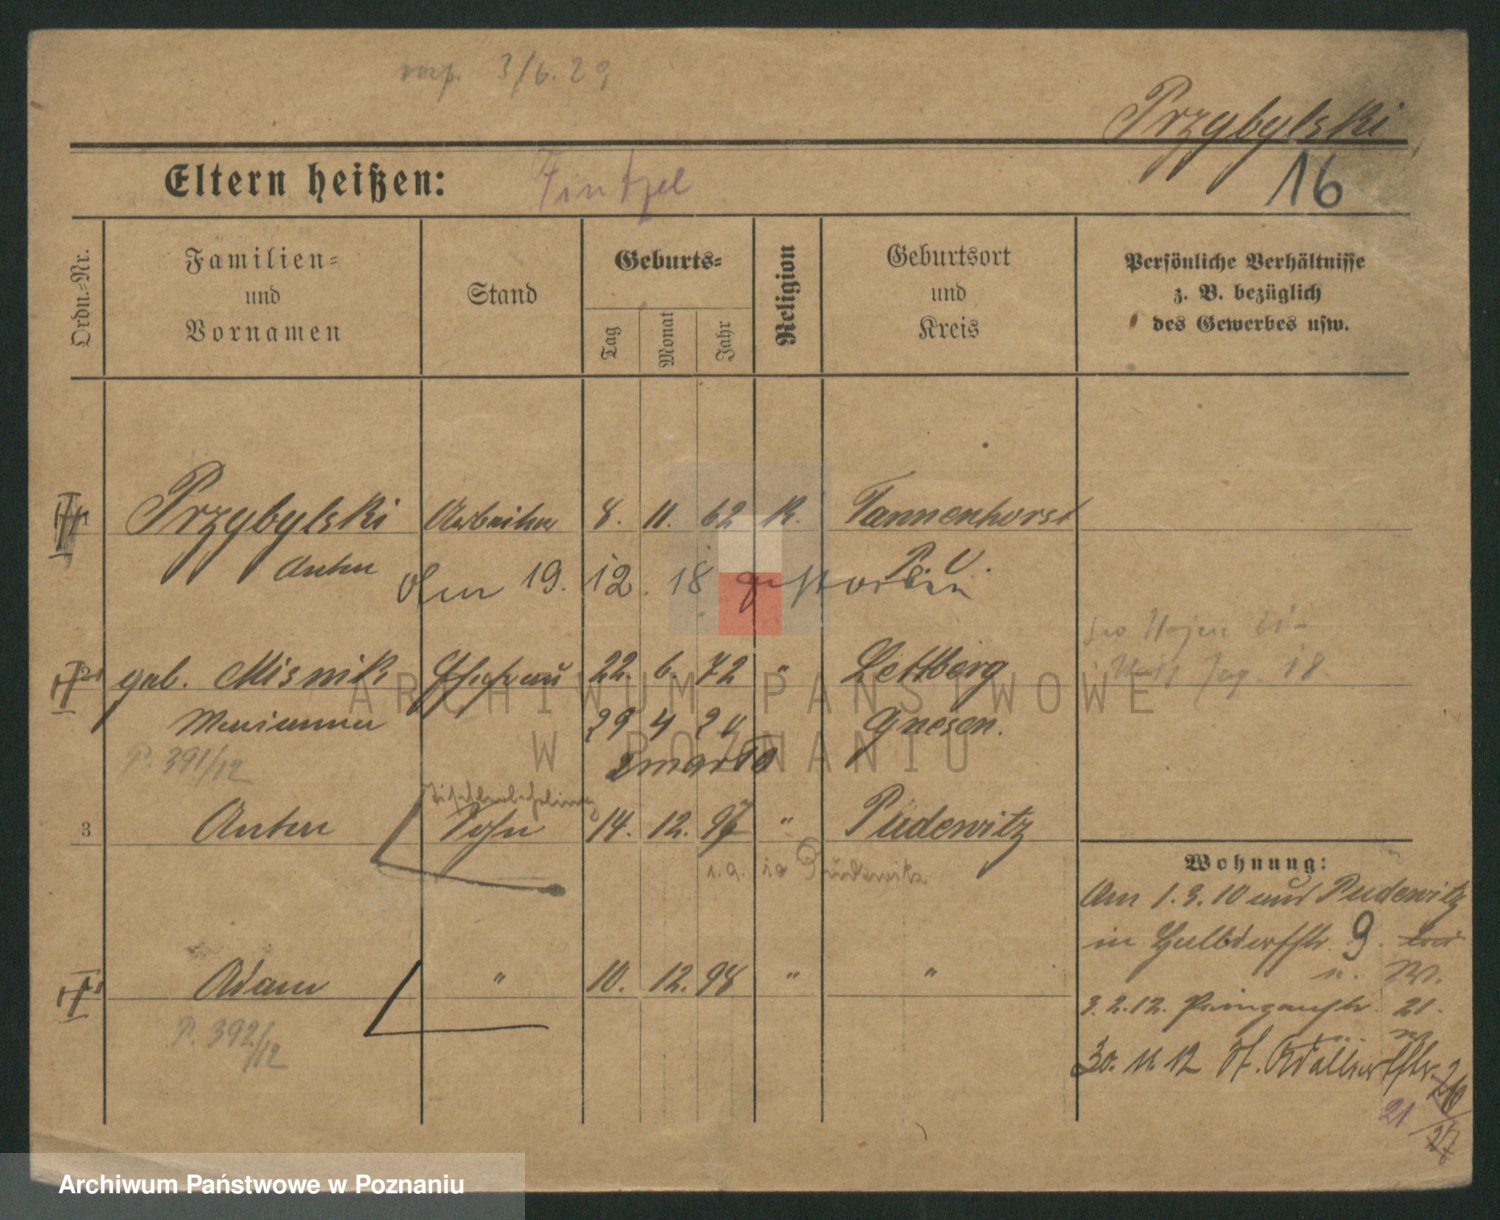 3/6.29
Przybylski
Eltern heißen:
16
Ordn.-Nr.
Familien-
und
Vornamen
Stand
Geburts-
Tag
Monat
Jahr
Religion
Geburtsort
und
Kreis
Persönliche Verhältnisse
z. B. bezüglich
des Gewerbes usw.
Przybylski Arbeiter 8. 11. 62 K. Tannenhorst
Anton P. O.
Am 19. 12. 18 gestorben
geb. Misnik Ehefrau 22. 6. 72 " Lettberg
Marianna 29 4 24 Gnesen.
zmarła
P. 391/12
3 Anton Sohn 14. 12. 97 " Pudewitz
i. a. Pudewitz
Adam " 10. 12. 98 " "
P. 392/12
Wohnung:
Am 1.3.10 aus Pudewitz
in 9.
3.2.12. 21.
30. 11. 12 St.
21
ARCHIWUM PAŃSTWOWE
W POZNANIU
Archiwum Państwowe w Poznaniu